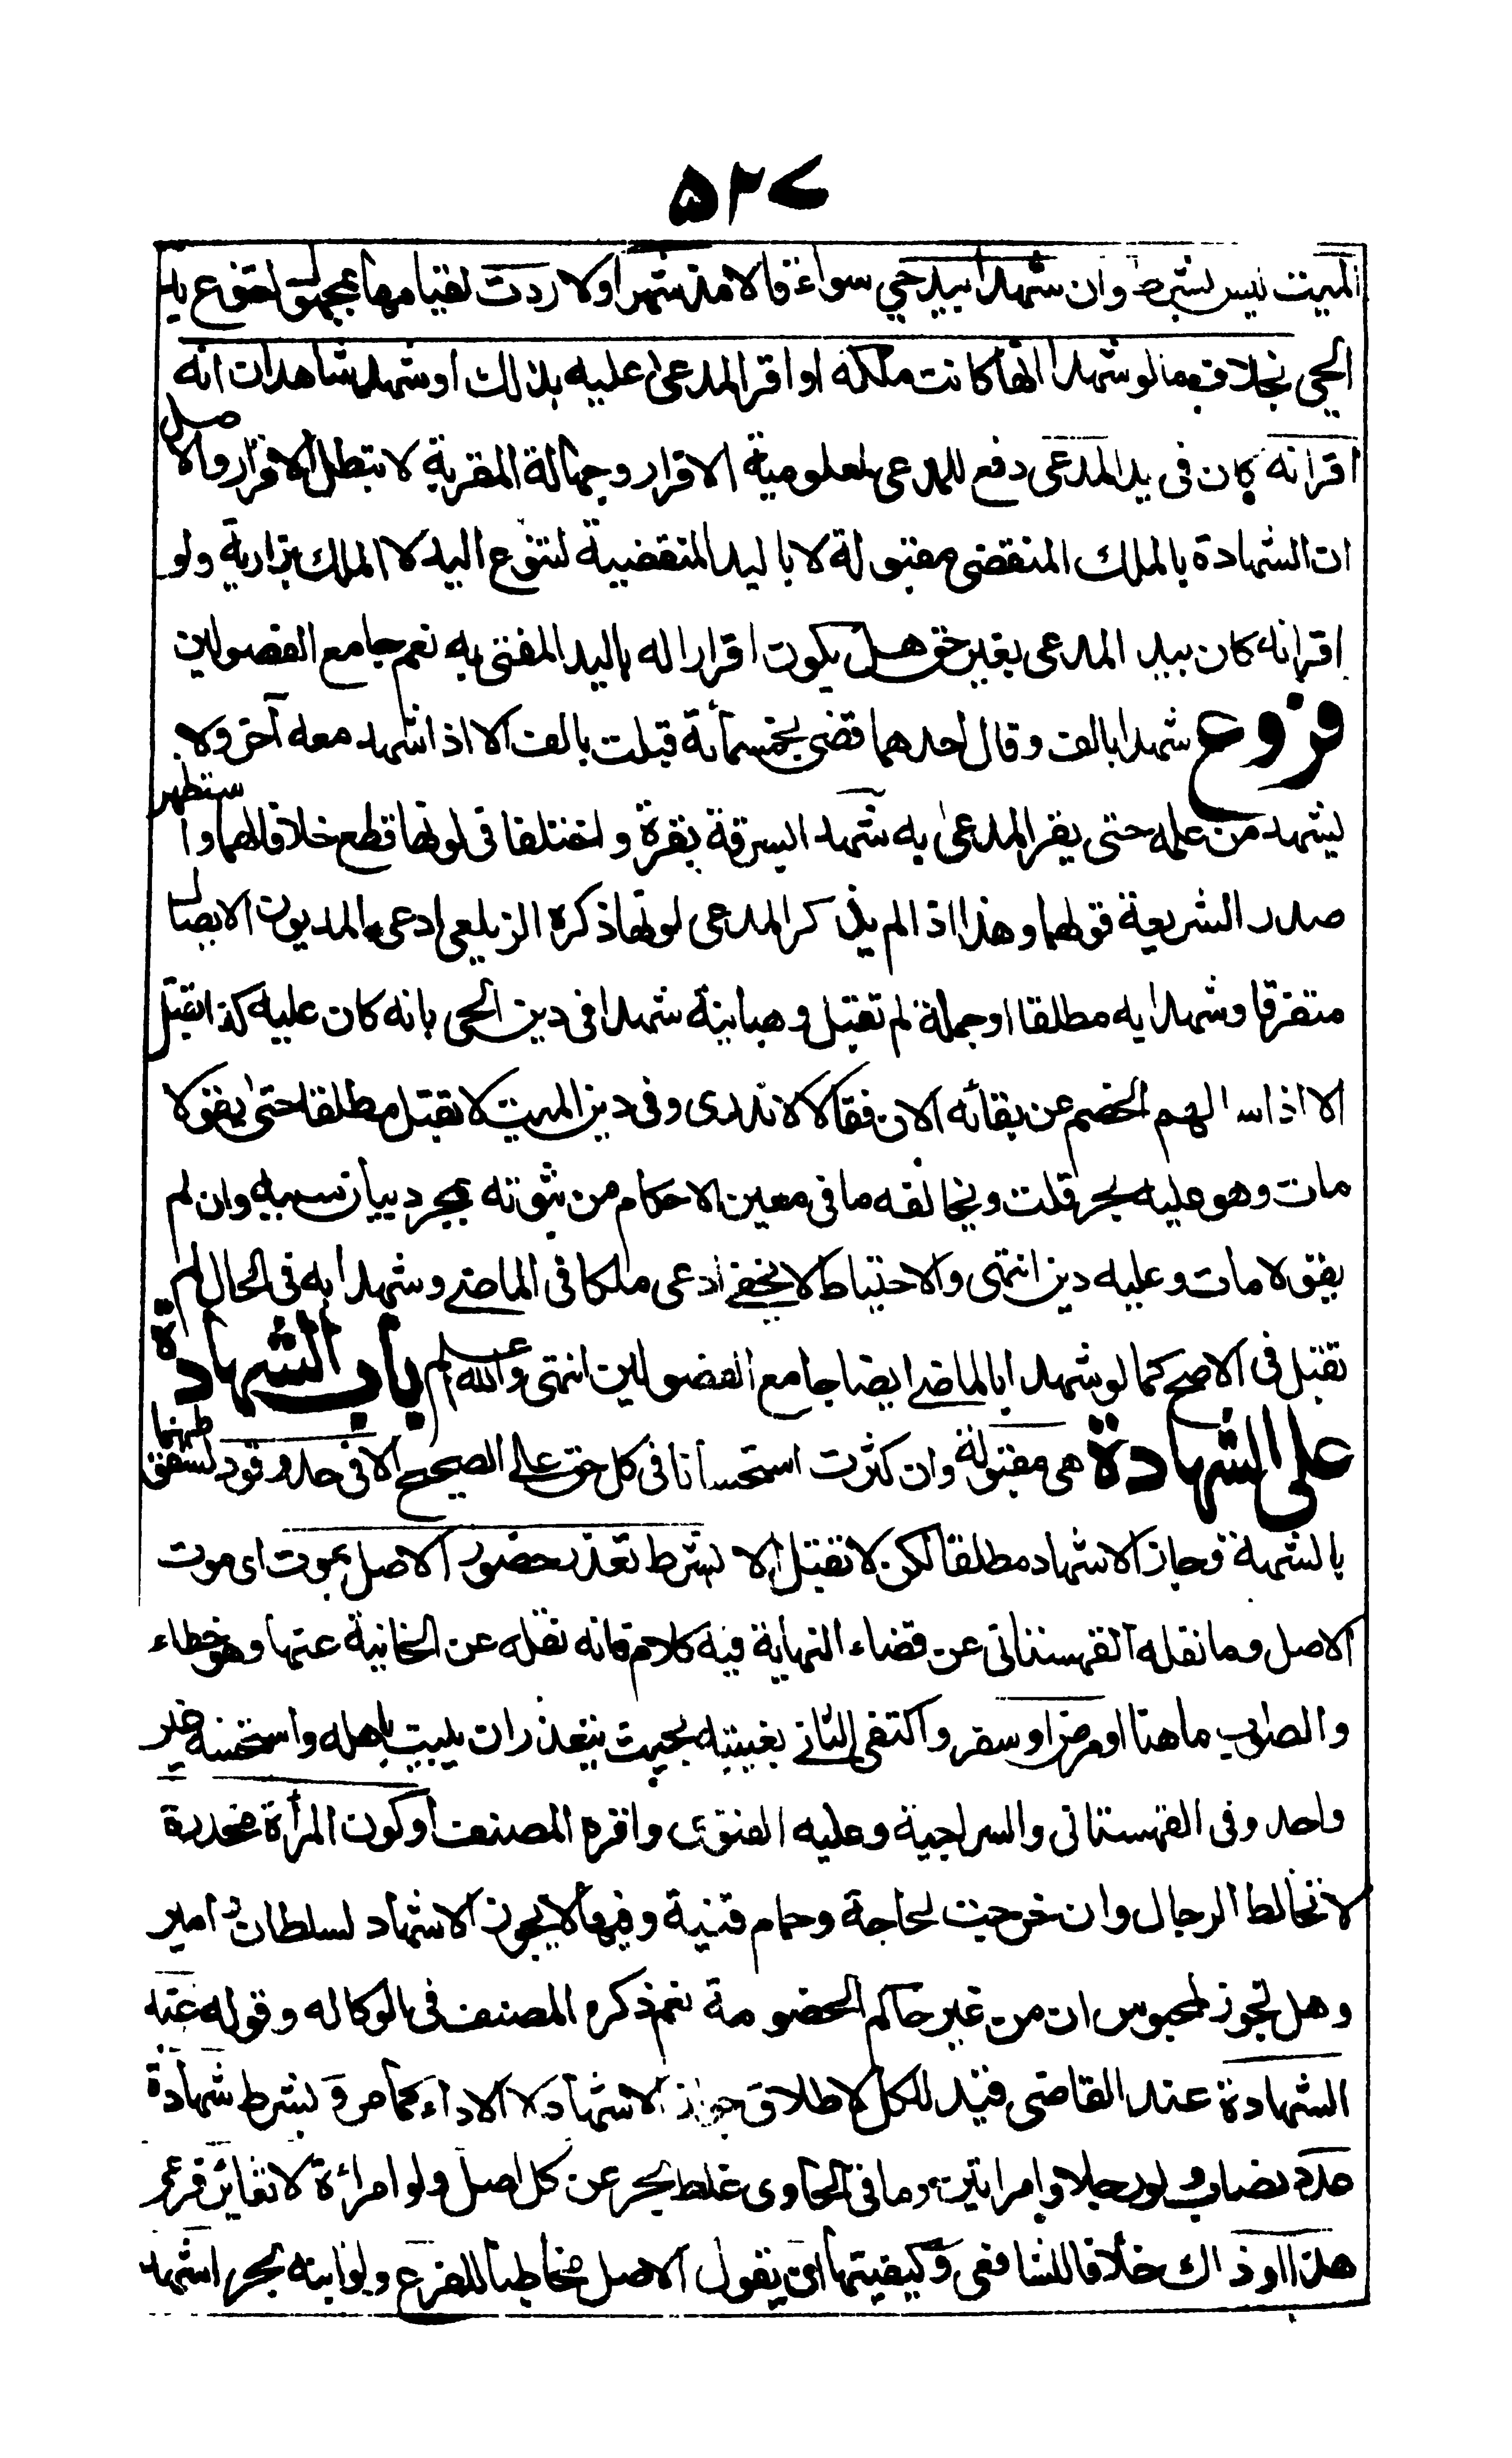 ۵۲۷
الميت ليس بشرط وان شهدا بيد حي سواء قالا مذ شهر اولا ردت لقيامها بمجهول لتنوع يد
الحى بخلاف ما لو شهدا انها كانت ملكه او اقر المدعى عليه بذلك او شهد شاهدان انه
اقر انه كان فى يد المدعى دفع للمدعى لمعلومية الاقرار وجهالة المقر به لا تبطل الاقرار والاصل
ان الشهادة بالملك المنقضى مقبولة لا باليد المنقضية لتنوع اليد لا الملك بزازية ولو
اقر انه كان بيد المدعى بغير حق هل يكون اقرارا له باليد المفتى به نعم جامع الفصولين
فروع شهدا بالف وقال احدهما قضى خمسمائة قبلت بالف الا اذا شهد معه آخر ولا
يشهد من علمه حتى يقر المدعى به شهدا بسرقة بقرة واختلفا فى لونها قطع خلافا لهما واستظهر
صدر الشريعة قولهما وهذا اذا لم يذكر المدعى لونها ذكره الزيلعى ادعى المديون الايصال
متفرقا وشهدا به مطلقا او جملة لم تقبل وهبانية شهدا فى دين الحى بانه كان عليه كذا تقبل
الا اذا سالهم الخصم عن بقائه الان فقالا لا ندرى وفى دين الميت لا تقبل مطلقا حتى يقولا
مات وهو عليه بحر قلت ويخالفه ما فى معين الاحكام من ثبوته بمجرد بيان سببه وان لم
يقولا مات وعليه دين انتهى والاحتياط لا يخفى ادعى ملكا فى الماضى وشهدا به فى الحال لم
تقبل فى الاصح كما لو شهدا بالماضى ايضا جامع الفصولين انتهى والله اعلم باب الشهادة
على الشهادة هى مقبولة وان كثرت استحسانا فى كل حق على الصحيح الا فى حد وقود لسقوطهما
بالشبهة وجاز الاشهاد مطلقا لكن لا تقبل الا بشرط تعذر حضور الاصل بموت اى موت
الاصل وما نقله القهستانى عن قضاء النهاية فيه كلام فانه نقله عن الخانية عنها وهو خطاء
والصواب ما هنا او مرض او سفر واكتفى الثانى بغيبته بحيث يتعذر ان يبيت باهله واستحسنه غير
واحد وفى القهستانى والسراجية وعليه الفتوى واقره المصنف او كون المرأة مخدرة
لا تخالط الرجال وان خرجت لحاجة وحمام قنية وفيها لا يجوز الاشهاد لسلطان وامير
وهل تجوز لمحبوس ان من غير حاكم الخصومة نعم ذكره المصنف فى الوكاله وقوله عند
الشهادة عند القاضى قيد للكل لاطلاق جواز الاشهاد لا الاداء كما مر وبشرط شهادة
عدد نصاب ولو رجلا وامراتين وما فى الحاوى غلط بحر عن كل اصل ولو امراءة لا تغاير فرعى
هذا او ذاك خلافا للشافعى وكيفيتها ان يقول الاصل مخاطبا للفرع ولو ابنه بحر اشهد